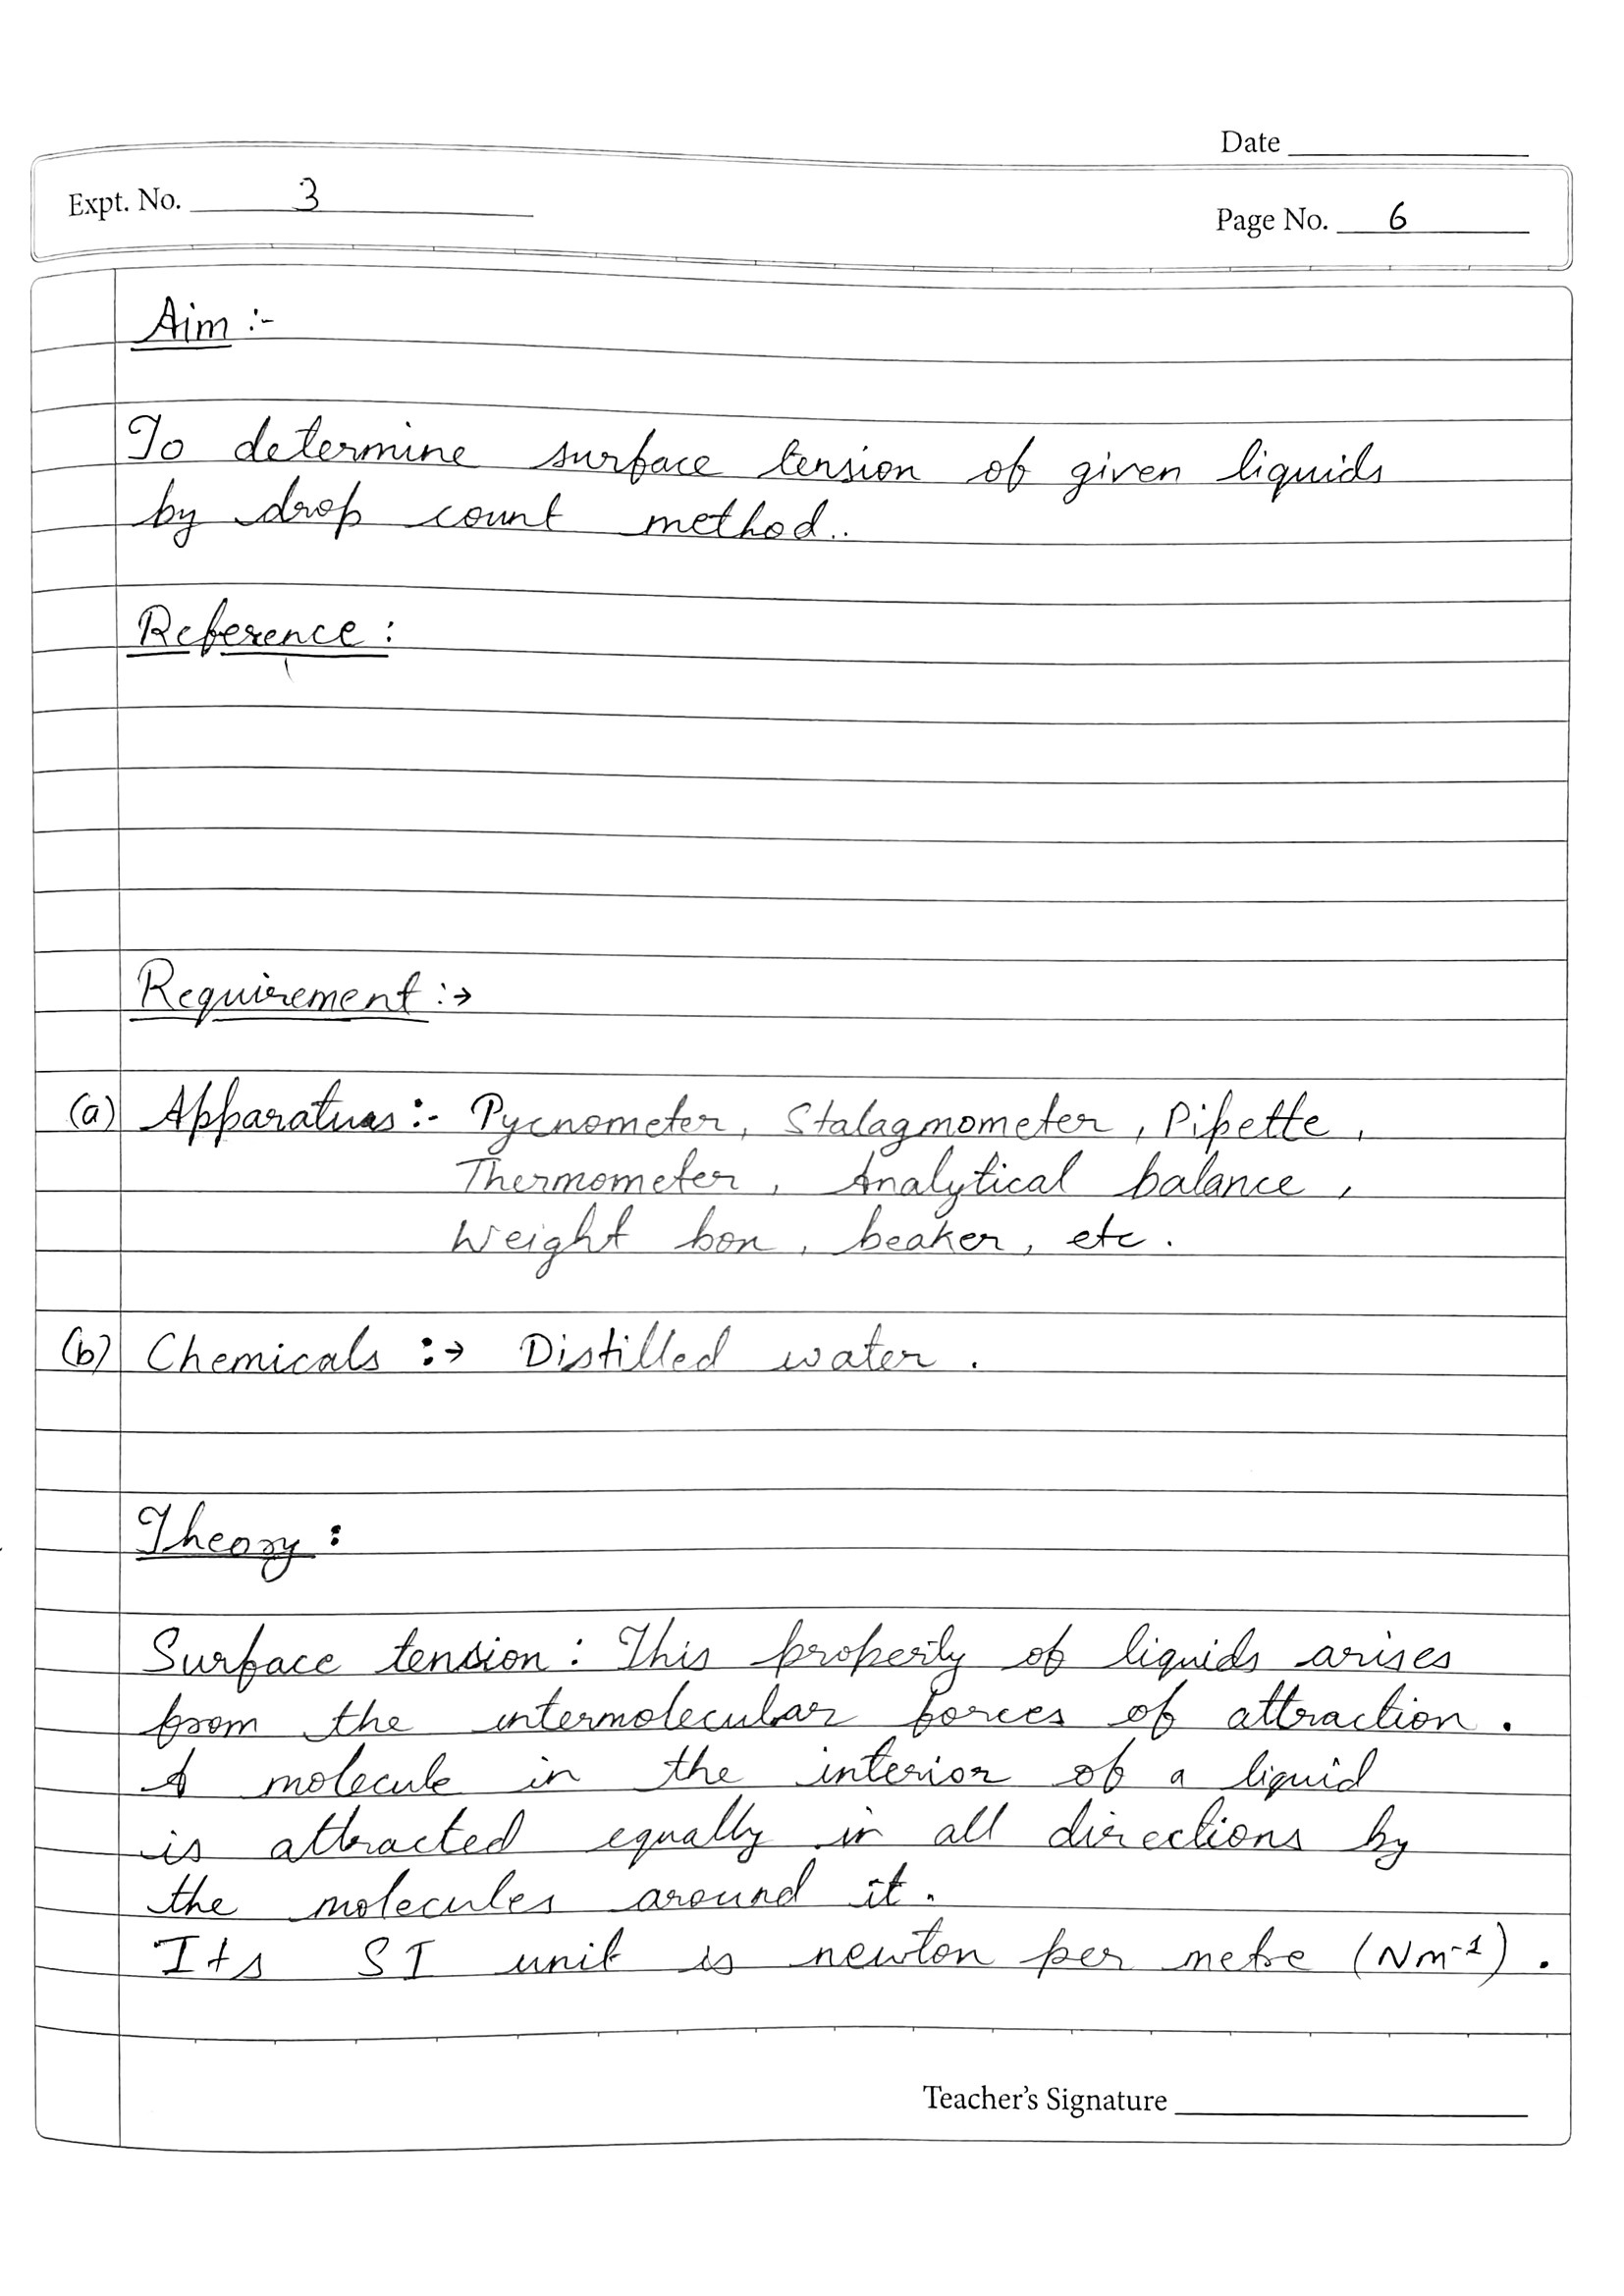 Date
Expt. No. 3
Page No. 6
Aim :-
To determine surface tension of given liquids
by drop count method..
Reference :
Requirement :→
(a) Apparatus :- Pycnometer, Stalagmometer, Pipette,
Thermometer, Analytical balance,
Weight box, beaker, etc.
(b) Chemicals :→ Distilled water.
Theory :
Surface tension : This property of liquids arises
from the intermolecular forces of attraction.
A molecule in the interior of a liquid
is attracted equally in all directions by
the molecules around it.
Its SI unit is newton per metre (Nm⁻¹).
Teacher's Signature